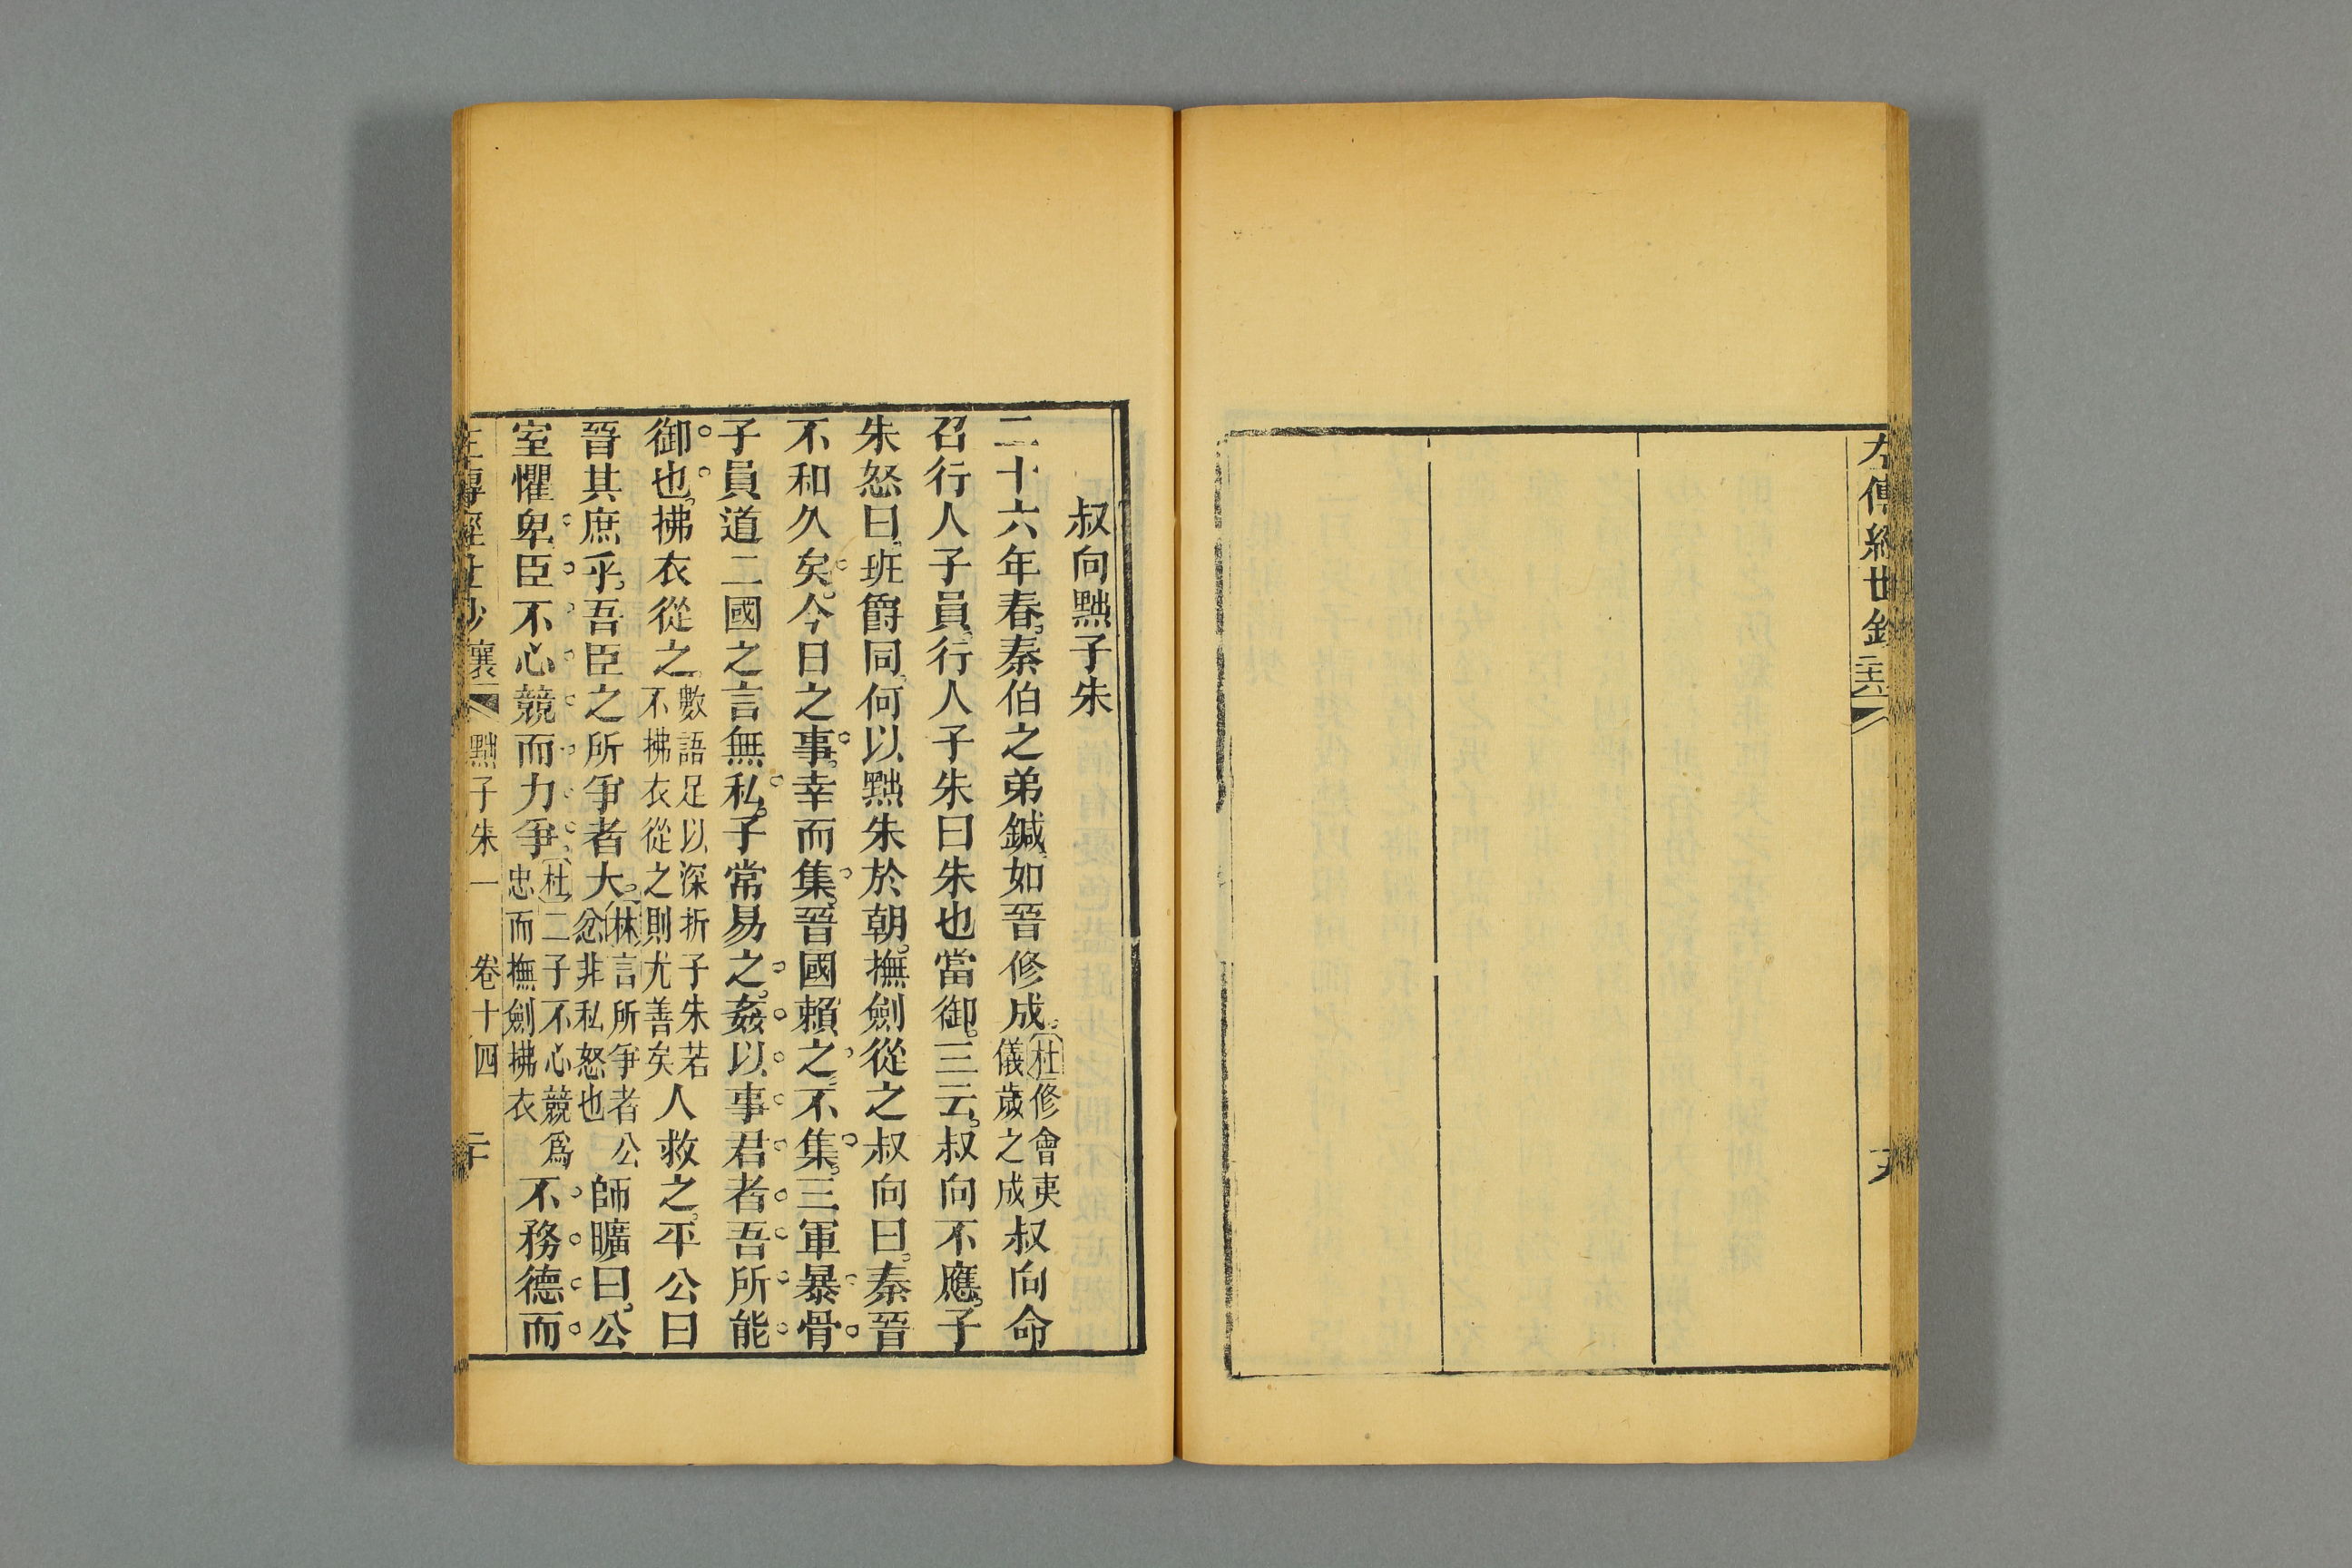 左傳經世鈔
叔向黜子朱
二十六年春。秦伯之弟鍼。如晉修成。杜修會夷儀歲之成叔向命
召行人子員。行人子朱曰朱也當御。三云。叔向不應。子
朱怒曰。班爵同。何以黜朱於朝。撫劍從之叔向曰。秦晉
不和久矣。今日之事。幸而集。晉國賴之。不集。三軍暴骨
子員道二國之言無私。子常易之。姦以事君者吾所能
御也。拂衣從之。數語足以深折子朱若不拂衣從之則尤善矣人救之。平公曰
晉其庶乎。吾臣之所爭者大。林言所爭者公忿非私怒也師曠曰。公
室懼卑。臣不心競而力爭。杜二子不心競爲忠而撫劍拂衣不務德而
左傳經世鈔 襄 黜子朱一 卷十四 二十